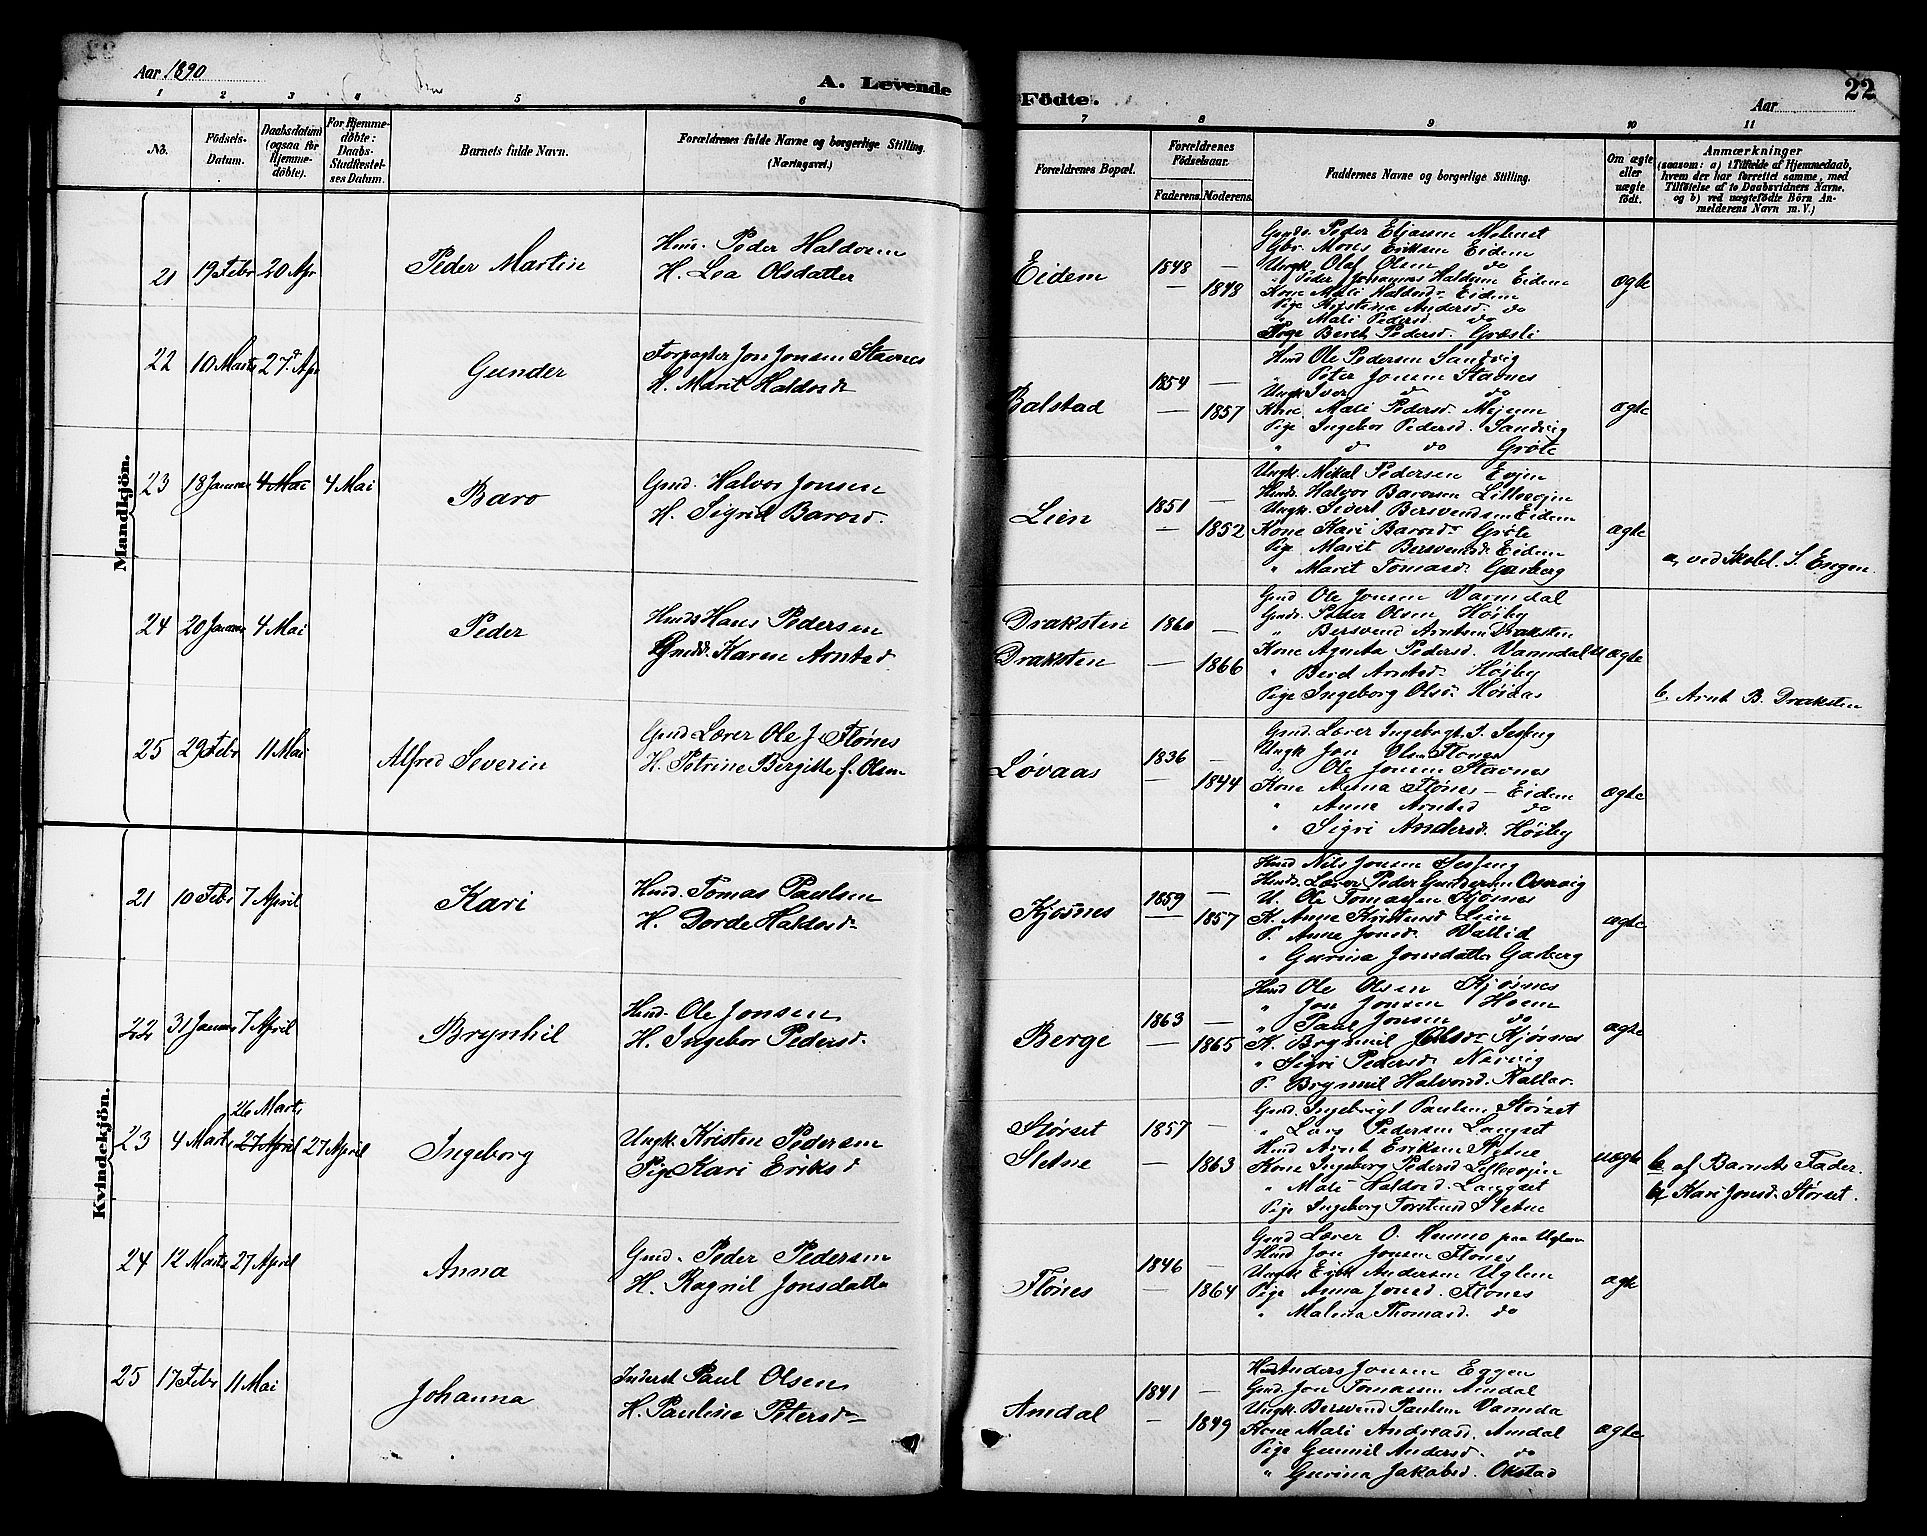 Aar 1890
A. Levende
Födte.
Aar
22
1 2 3 4 5 6 7 8 9 10 11
No.
Födsels-Datum.
Daabsdatum (ogsaa for Hjemmedöbte).
For Hjemmedöbte: Daabs-Stadfæstelses Datum.
Barnets fulde Navn.
Forældrenes fulde Navne og borgerlige Stilling. (Næringsvei.)
Forældrenes Bopæl.
Forældrenes Födselsaar.
Faderens.
Moderens.
Faddernes Navne og borgerlige Stilling.
Om ægte eller uægte födt.
Anmærkninger
(saasom: a) i Tilfælde af Hjemmedaab, hvem der har forrettet samme, med Tilföielse af to Daabsvidners Navne. og b) ved uægtefödte Börn Anmelderens Navn m. V.)
Mandkjön.
21 19 Febr 20 Apr
Peder Martin
Hmd. Peder Haldosen
H. Lea Olsdatter
Eidem
1848 —
— 1848
Gmd. Peder Eliasen Molnet
Gbr. Mons Eriksen Eidem
Ungk. Olaf Olsen do
" Peder Johannes Haldosen Eidem
Kone Mali Haldosd. Eidem
Pige Kirstina Andersd. do
" Mali Pedersd. do
Pige Bereth Pedersd. Græsli
ægte
22 10 Marts 27d. Apr
Gunder
Forpagter Jon Jonsen Stavnes
H. Marit Haldosd.
Balstad
1854 —
— 1857
Hmd Ole Pedersen Sandvig
" Peter Jonsen Stavnes
Ungk. Iver do do
Kone Mali Pedersd. Mejem
Pige Ingebor Pedersd. Sandvig
" do do Grøte
ægte
23 18 Januar 4 Mai 4 Mai
Baro
Gmd. Halvor Jonsen
H. Sigrid Barosd.
Lien
1851 —
— 1852
Ungk. Mikal Pedersen Evjen
Hmd. Halvor Barosen Lillevjen
Ungk. Sivert Bersvendsen Eidem
Kone Kari Barosd. Grøte
Pige Marit Bersvendsd. Eidem
" Marit Tomasd. Garberg
ægte
a, ved Skolel. S. Engen.
24 20 Januar 4 Mai
Peder
Hmds Hans Pedersen
Gmdd. Karen Arntsd
Draksten
Draksten
1860 —
— 1866
Gmd Ole Jonsen Vamdal
Gmd. Peder Olsen Høiby
" Bersvend Arntsen Draksten
Kone Agneta Pedersd. Vamdal
" Berit Arntsd. Høiby
Pige Ingeborg Olsd. Høiaas
uægte
b, Arnt B. Draksten
25 29 Febr 11 Mai
Alfred Severin
Gmd Lærer Ole J. Flønes
H. Petrine Bergitte f. Olsen
Løvaas
1836 —
— 1844
Gmd. Lærer Ingebrgt. J. Sesseng
Ungk Jon Olsen Flones
" Ole Jonsen Stavnes
Kone Anna Flønes — Eidem
" Anne Arntsd do
" Sigri Andersd. Høiby
ægte
Kvindekjön.
21 10 Febr 7 April
Kari
Hmd. Tomas Paulsen
H. Dorde Haldosd.
Kjøsnes
1859 —
— 1857
Hmd Nils Jonsen Sesseng
Hmds. Lærer Peder Gundersen Overvig
U. Ole Tomasen Kjøsnes
K. Anne Kristensd Lien
P. Anne Jonsd. Vallid
" Gurina Jonsdatter Garberg
ægte
22 31 Januar 7 April
Brynhil
Hmd. Ole Jonsen
H. Ingebor Pedersd.
Berge
1863 —
— 1865
Hmd Ole Olsen Kjøsnes
" Jon Jonsen Hoem
" Paul Jonsen do
K. Brynnil Olsd. Kjøsnes
" Sigri Pedersd. Nervig
P. Brynnil Halvorsd. Kallar.
ægte
26 Marts
23 4 Marts 27 April 27 April
Ingeborg
Ungk. Kristen Pedersen
Pige Kari Eriksd
Størset
Sletne
1857 —
— 1863
Gmd. Ingebrigt Paulsen Størset
" Lars Pedersen Langset
Hmd Arnt Eriksen Sletne
Kone Ingeborg Pedersd Lillevjen
" Mali Haldosd. Langset
Pige Ingeborg Torstensd Sletne
uægte
b af Barnets Fader.
a, Kari Jonsd. Størset.
24 12 Marts 27 April
Anna
Gmd. Peder Pedersen
H. Ragnil Jonsdatter
Flønes
1846 —
— 1864
Gmd Lærer O. Mennio paa Uglen
Hmd Jon Jonsen Flones
Ungk Erik Andersen Uglem
Pige Anna Jonsd. Flønes
" Malena Thomasd. do
ægte
25 17 Febr 11 Mai
Johanna
Inderst Paul Olsen
H. Pauline Petersd.
Amdal
1841 —
— 1849
Hmd Anders Jonsen Eggen
Gmd. Jon Tomasen Amdal
Ungk. Bersvend Paulsen Vamda
Kone Mali Andreasd. Amdal
Pige Gunnil Andersd. do
" Gurina Jakobsd. Okstad
ægte